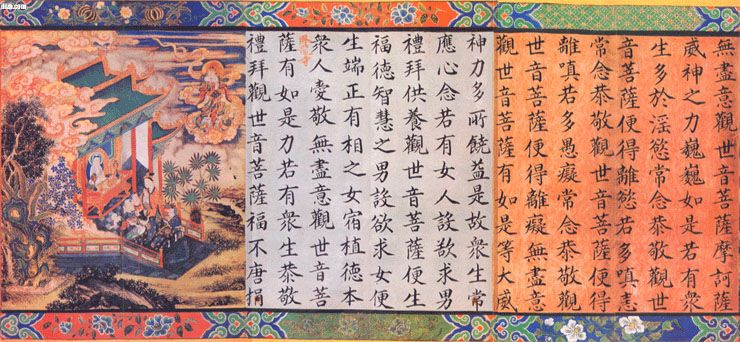 無盡意觀世音菩薩摩訶薩
威神之力巍巍如是若有衆
生多於淫慾常念恭敬觀世
音菩薩便得離慾若多嗔恚
常念恭敬觀世音菩薩便得
離嗔若多愚癡常念恭敬觀
世音菩薩便得離癡無盡意
觀世音菩薩有如是等大威
神力多所饒益是故衆生常
應心念若有女人設欲求男
禮拜供養觀世音菩薩便生
福德智慧之男設欲求女便
生端正有相之女宿植德本
衆人愛敬無盡意觀世音菩
薩有如是力若有衆生恭敬
禮拜觀世音菩薩福不唐捐